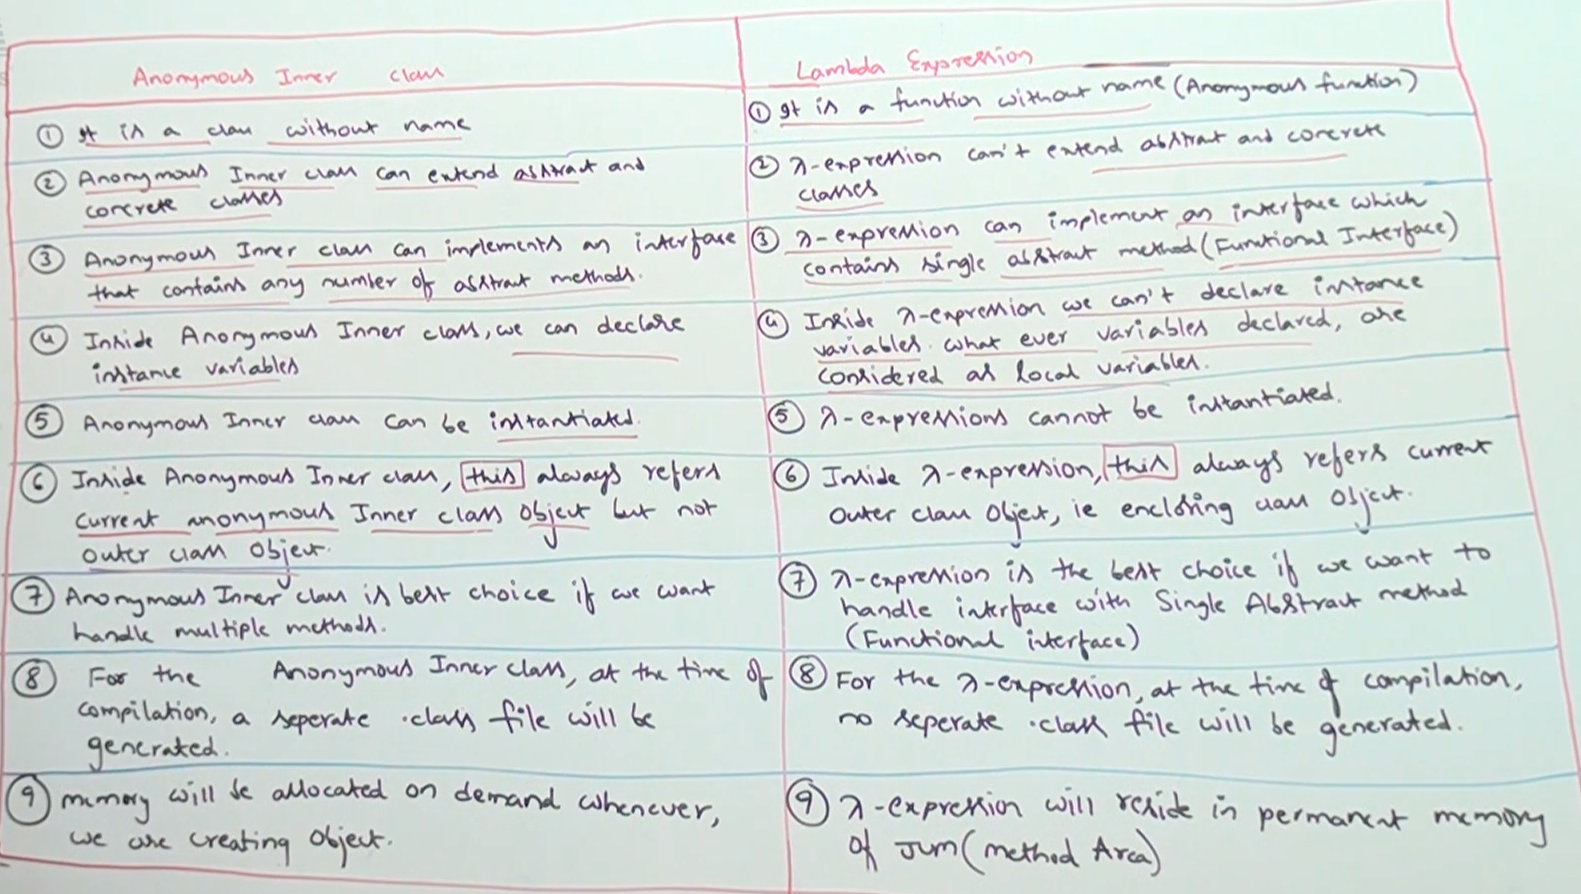 Anonymous Inner class
Lambda Expression
① It is a class without name
① It is a function without name (Anonymous function)
② Anonymous Inner class can extend abstract and
concrete classes
② λ-expression can't extend abstract and concrete
classes
③ Anonymous Inner class can implements an interface
that contains any number of abstract methods.
③ λ-expression can implement an interface which
contains single abstract method (Functional Interface)
④ Inside Anonymous Inner class, we can declare
instance variables
④ Inside λ-expression we can't declare instance
variables. what ever variables declared, are
considered as local variables.
⑤ Anonymous Inner class can be instantiated.
⑤ λ-expressions cannot be instantiated.
⑥ Inside Anonymous Inner class, this always refers
current anonymous Inner class object but not
outer class object.
⑥ Inside λ-expression, this always refers current
outer class object, ie enclosing class object.
⑦ Anonymous Inner class is best choice if we want
handle multiple methods.
⑦ λ-expression is the best choice if we want to
handle interface with Single Abstract method
(Functional interface)
⑧ For the Anonymous Inner class, at the time of
compilation, a seperate .class file will be
generated.
⑧ For the λ-expression, at the time of compilation,
no seperate .class file will be generated.
⑨ memory will be allocated on demand whenever,
we are creating object.
⑨ λ-expression will reside in permanent memory
of JVM (method Area)